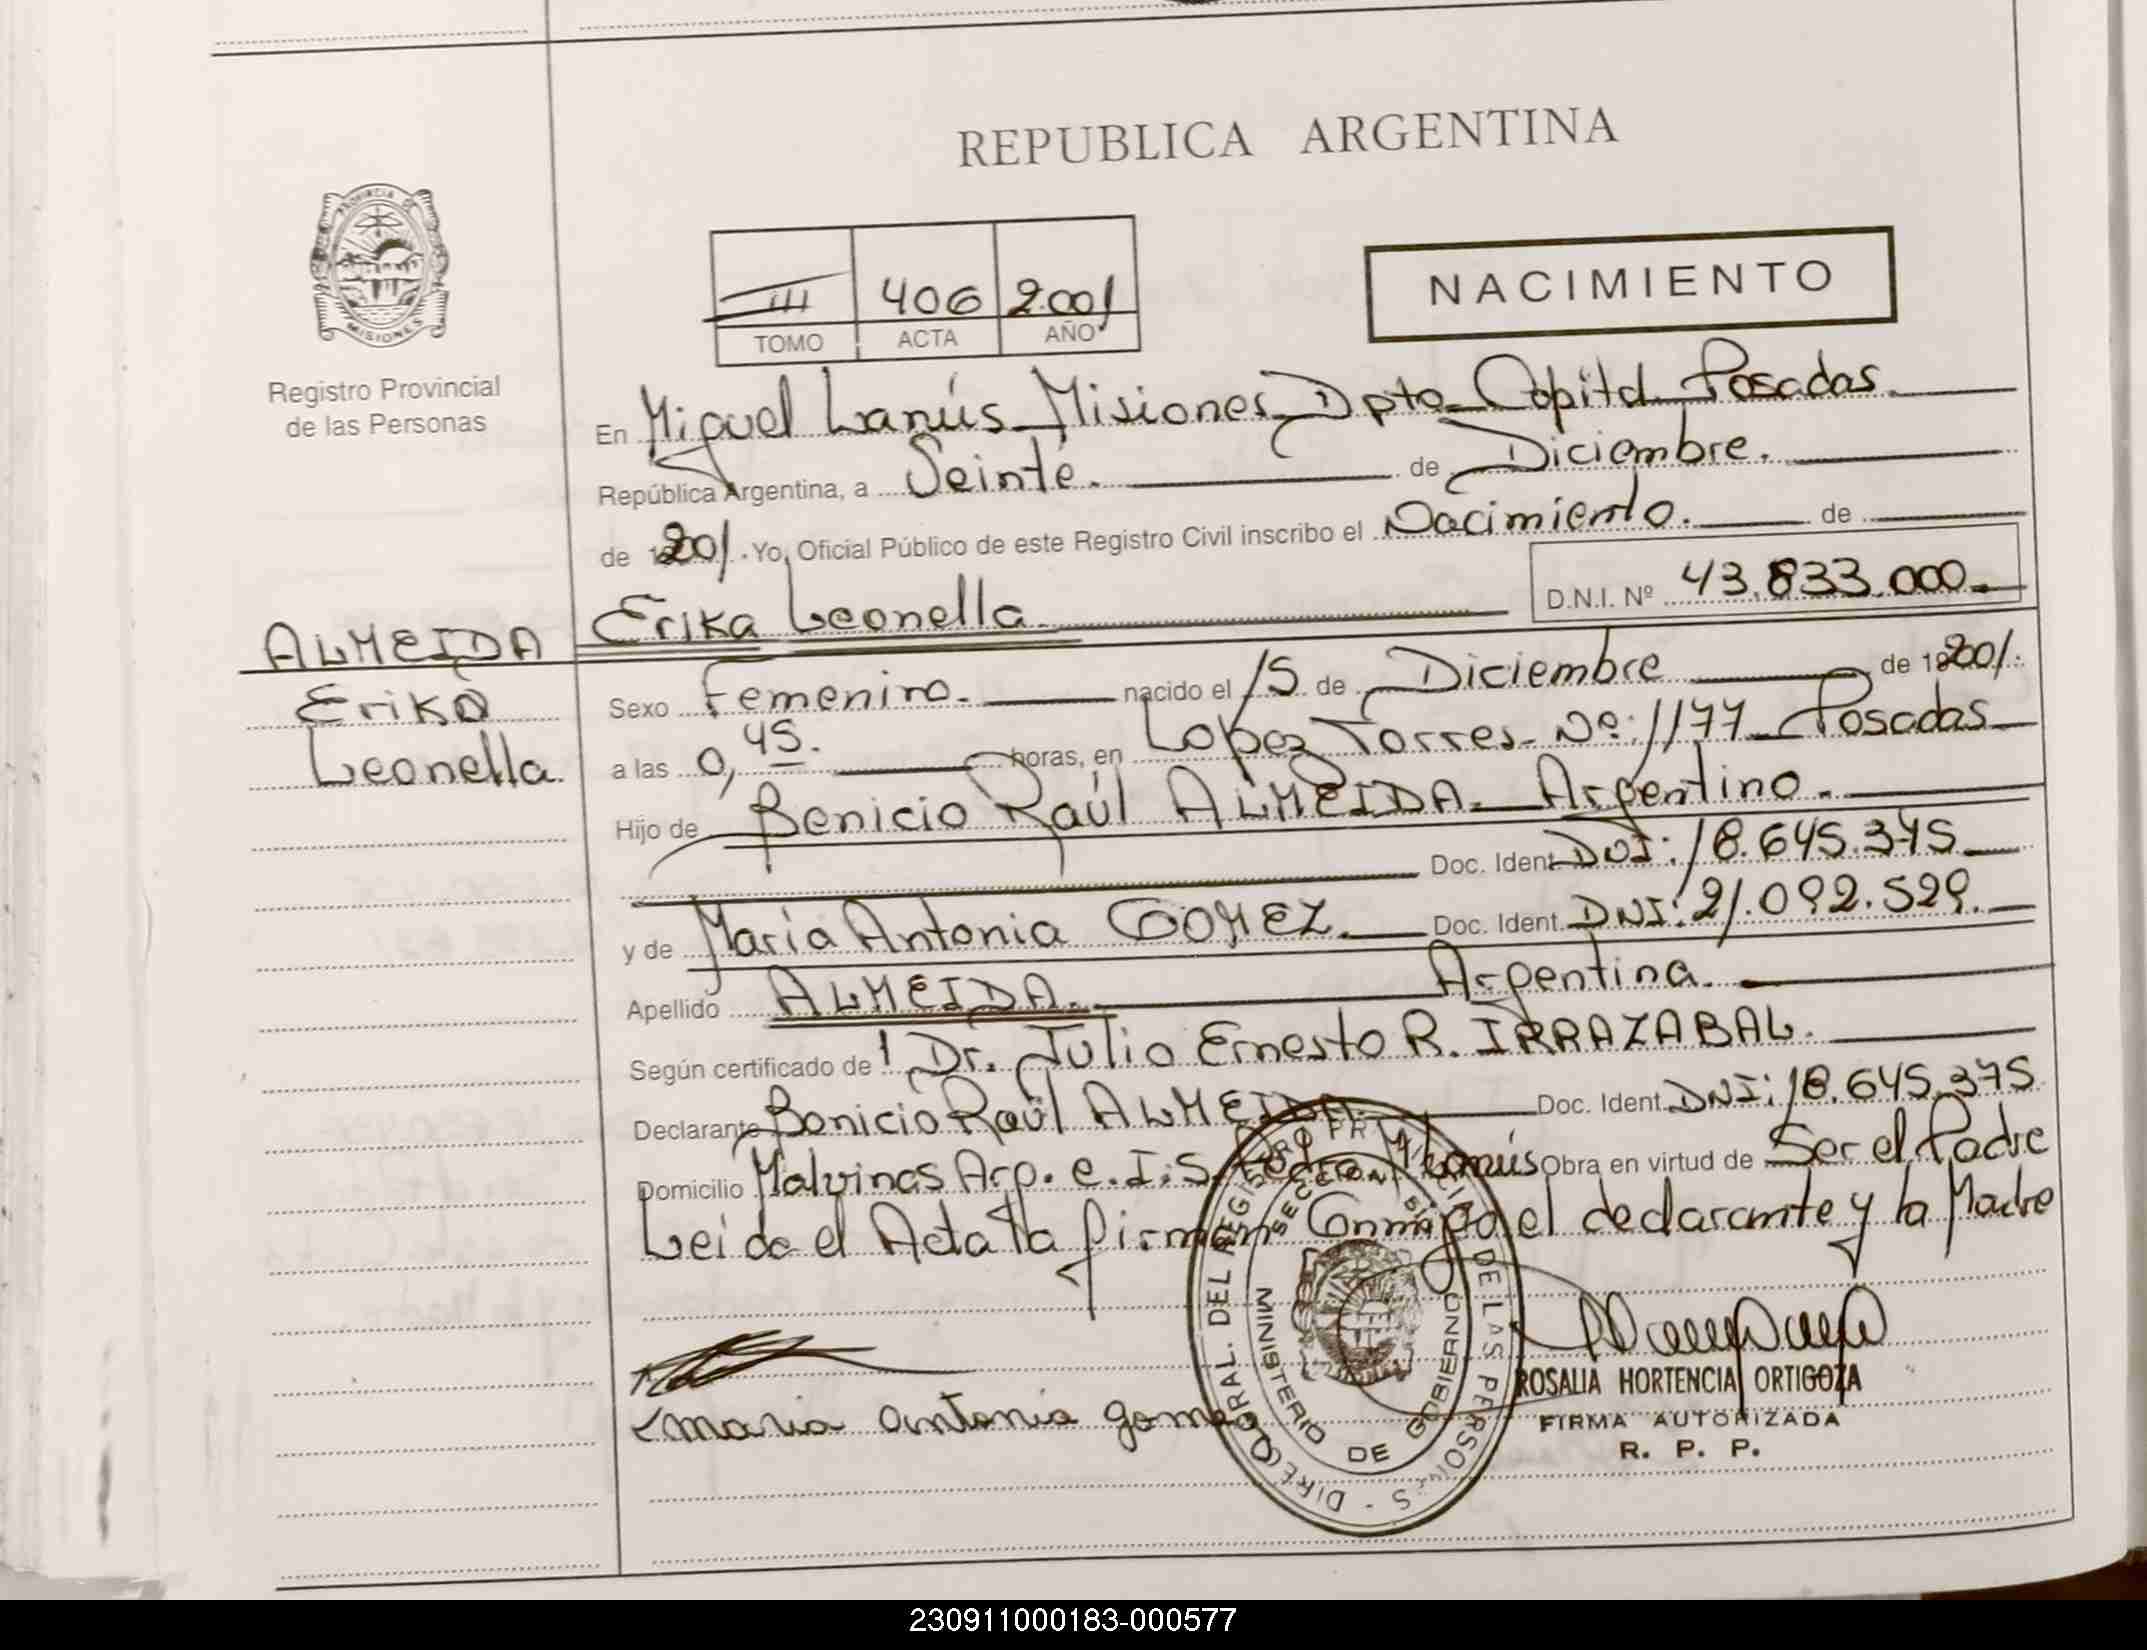 REPUBLICA ARGENTINA
PROVINCIA DE
MISIONES
Registro Provincial
de las Personas
III 406 2.001
TOMO ACTA AÑO
NACIMIENTO
En Miguel Lanús Misiones Dpto Capital Posadas
República Argentina, a Veinte. de Diciembre.
de 2001. Yo, Oficial Público de este Registro Civil inscribo el Nacimiento. de
D.N.I. Nº 43.833.000.
ALMEIDA
Erika
Leonella.
Erika Leonella.
Sexo Femenino. nacido el 15 de Diciembre de 2001.
a las 0,45. horas, en Lopez Torres Nº: 1177 Posadas
Hijo de Benicio Raúl ALMEIDA. Argentino.
Doc. Ident. DNI: 18.645.375
y de María Antonia GOMEZ. Doc. Ident. DNI: 21.092.529.
Apellido ALMEIDA. Argentina.
Según certificado de Dr. Julio Ernesto R. IRRAZABAL.
Declarante Benicio Raúl ALMEIDA. Doc. Ident. DNI: 18.645.375
Domicilio Malvinas Arg. e. I. S. Lanús Obra en virtud de Ser el Padre
Leida el Acta la firman Conmigo el declarante y la Madre
maria antonia gomez
DIREC. GRAL. DEL REGISTRO PROVINCIAL DE LAS PERSONAS
MINISTERIO DE GOBIERNO
ROSALIA HORTENCIA ORTIGOZA
FIRMA AUTORIZADA
R. P. P.
230911000183-000577